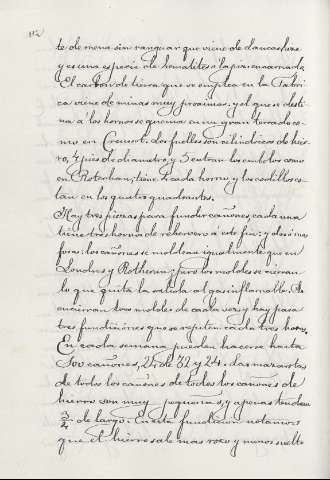 te de mena sin ranguar que viene de
y es una especie de hematites o lapiz encarnado
El carbon de tierra que se emplea en la Fabri-
ca viene de minas muy proximas: y el que se desti-
na á los hornos se quema en un gran tocado co-
mo en Creusort. Los fuelles son cilindricos de hier-
ro, 4 pies de diametro, y 5 entran los embolos como
en Rotherham; tiene 2 cada horno y los codillos es-
tan en los quatro quadrantes.
Hay tres piezas para fundir cañones, cada una
tiene tres hornos de rebervero á este fin: y dos ó mas
fosas: los cañones se moldean igualmente que en
Londres y Rotheram; pero los moldes se cierran
lo que quita la salida al gas inflamable. Se
encierran tres moldes de cada vez y hay pasa
tres fundiciones que se repiten cada tres horas.
En cada semana pueden hacerse hasta
300 cañones, 24 de 32 y 24. Las mazarotas
de todos los cañones de todos los canones de
hierro son muy pequeñas, y apenas tendran
3/4 de largo. En esta fundicion notamos
que el hierro sale mas roxo y menos suelto